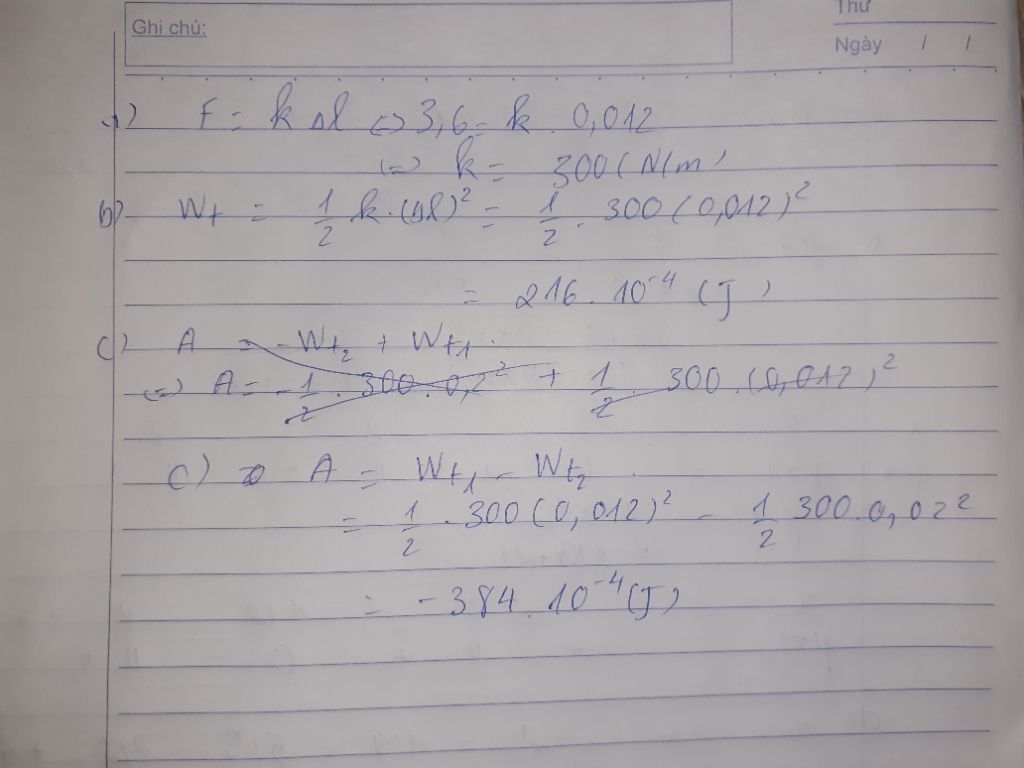 Ghi chú:
Thứ
Ngày / /
a) F = k Δl <=> 3,6 = k . 0,012
<=> k = 300 (N/m)
b) Wt = 1/2 k.(Δl)² = 1/2 . 300 (0,012)²
= 216 . 10⁻⁴ (J)
c) A = -Wt₂ + Wt₁.
<=> A = -1/2 . 300 . 0,2² + 1/2 . 300 . (0,012)²
c) A = Wt₁ - Wt₂
= 1/2 . 300 (0,012)² - 1/2 300 . 0,02²
= -384 . 10⁻⁴ (J)